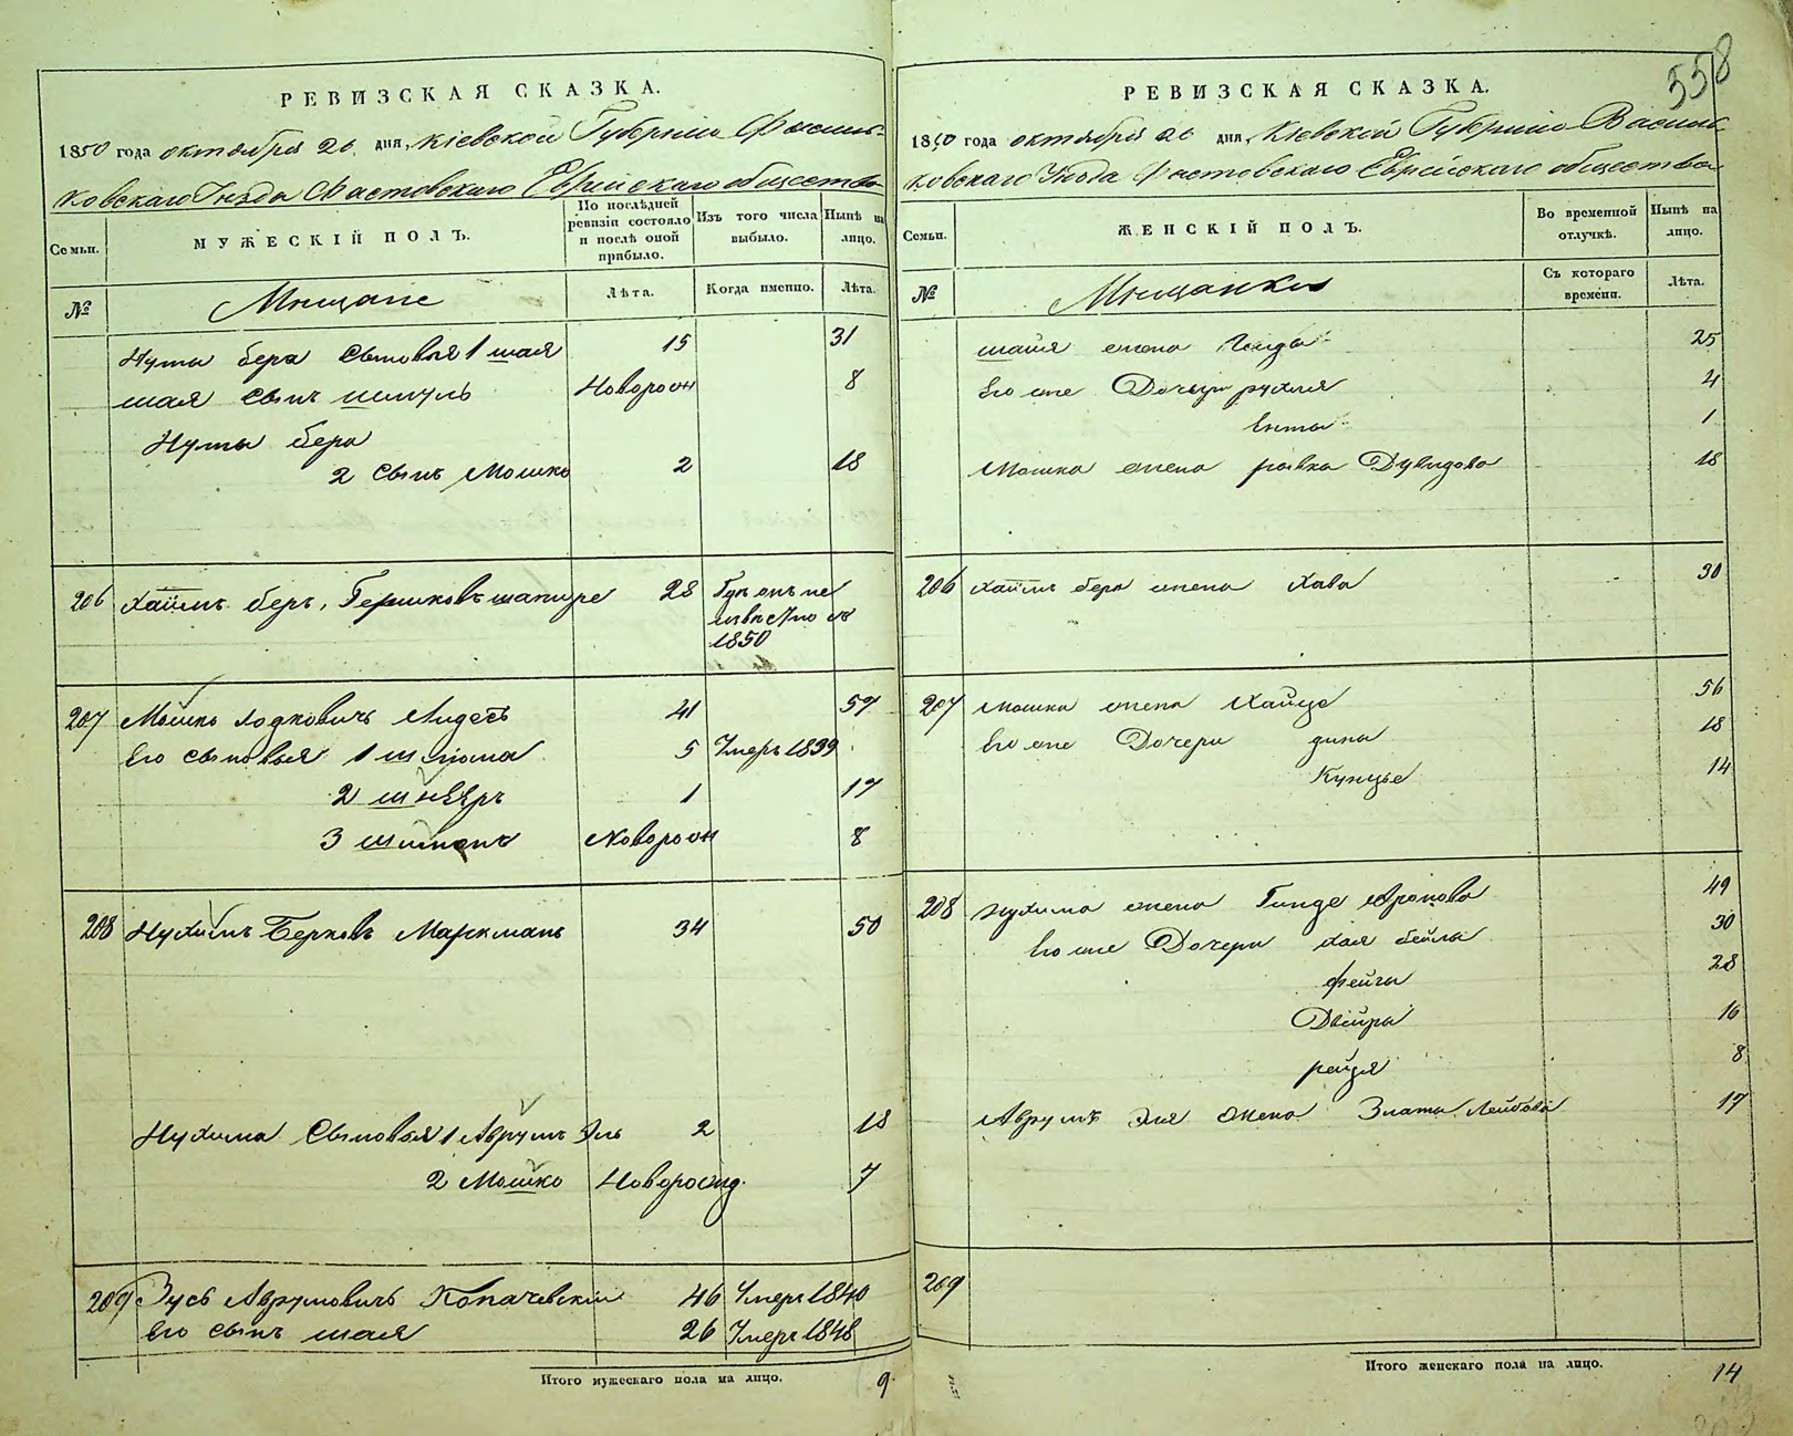 558
РЕВИЗСКАЯ СКАЗКА.
1850 года октября 26 дня, Кіевской Губерніи Василь-
ковскаго Уѣзда Фастовскаго Еврейскаго общества
Семьи.
МУЖЕСКІЙ ПОЛЪ.
По послѣдней ревизіи состояло и послѣ оной прибыло.
Изъ того числа выбыло.
Нынѣ на лицо.
№
Мѣщане
Лѣта.
Когда именно.
Лѣта.
Нуты бера сыновья 1 шая 15 31
шая сынъ шмуль Новорож 8
Нуты бера
2 сынъ Мошко 2 18
206 Хаимъ беръ Гершковъ шапире 28 Гдѣ онъ не
извѣстно съ
1850
207 Мошко Лидеръ 41 57
Его сыновья 1 шлюма 5 Умеръ 1839
2 шнееръ 1 17
3 шимонъ Новорож 8
208 Нухимъ Берковъ Маркманъ 34 50
Нухима Сыновья 1 Аврумъ Эль 2 18
2 Мошко Новорожд. 7
209 Зусь Аврумовичъ Копачевскій 46 Умеръ 1840
Его сынъ шая 26 Умеръ 1848
Итого мужескаго пола на лицо. 9
РЕВИЗСКАЯ СКАЗКА.
1850 года октября 26 дня, Кіевской Губерніи Василь-
ковскаго Уѣзда Фастовскаго Еврейскаго общества
Семьи.
ЖЕНСКІЙ ПОЛЪ.
Во временной отлучкѣ.
Нынѣ на лицо.
№
Мѣщанки
Съ котораго времени.
Лѣта.
шаия жена 25
Его же Дочери рухля 4
Ента 1
Мошка жена рывка Дувидова 18
206 Хаимъ бера жена Хава 30
207 Мошка жена Хайце 56
Его же Дочери дина 18
Кунцье 14
208 Нухима жена Гинде Аронова 49
Его же Дочери хая бейла 30
фейга 28
Двейра 16
рейзя 8
Аврумъ Эля жена Злата Лейбова 17
209
Итого женскаго пола на лицо. 14